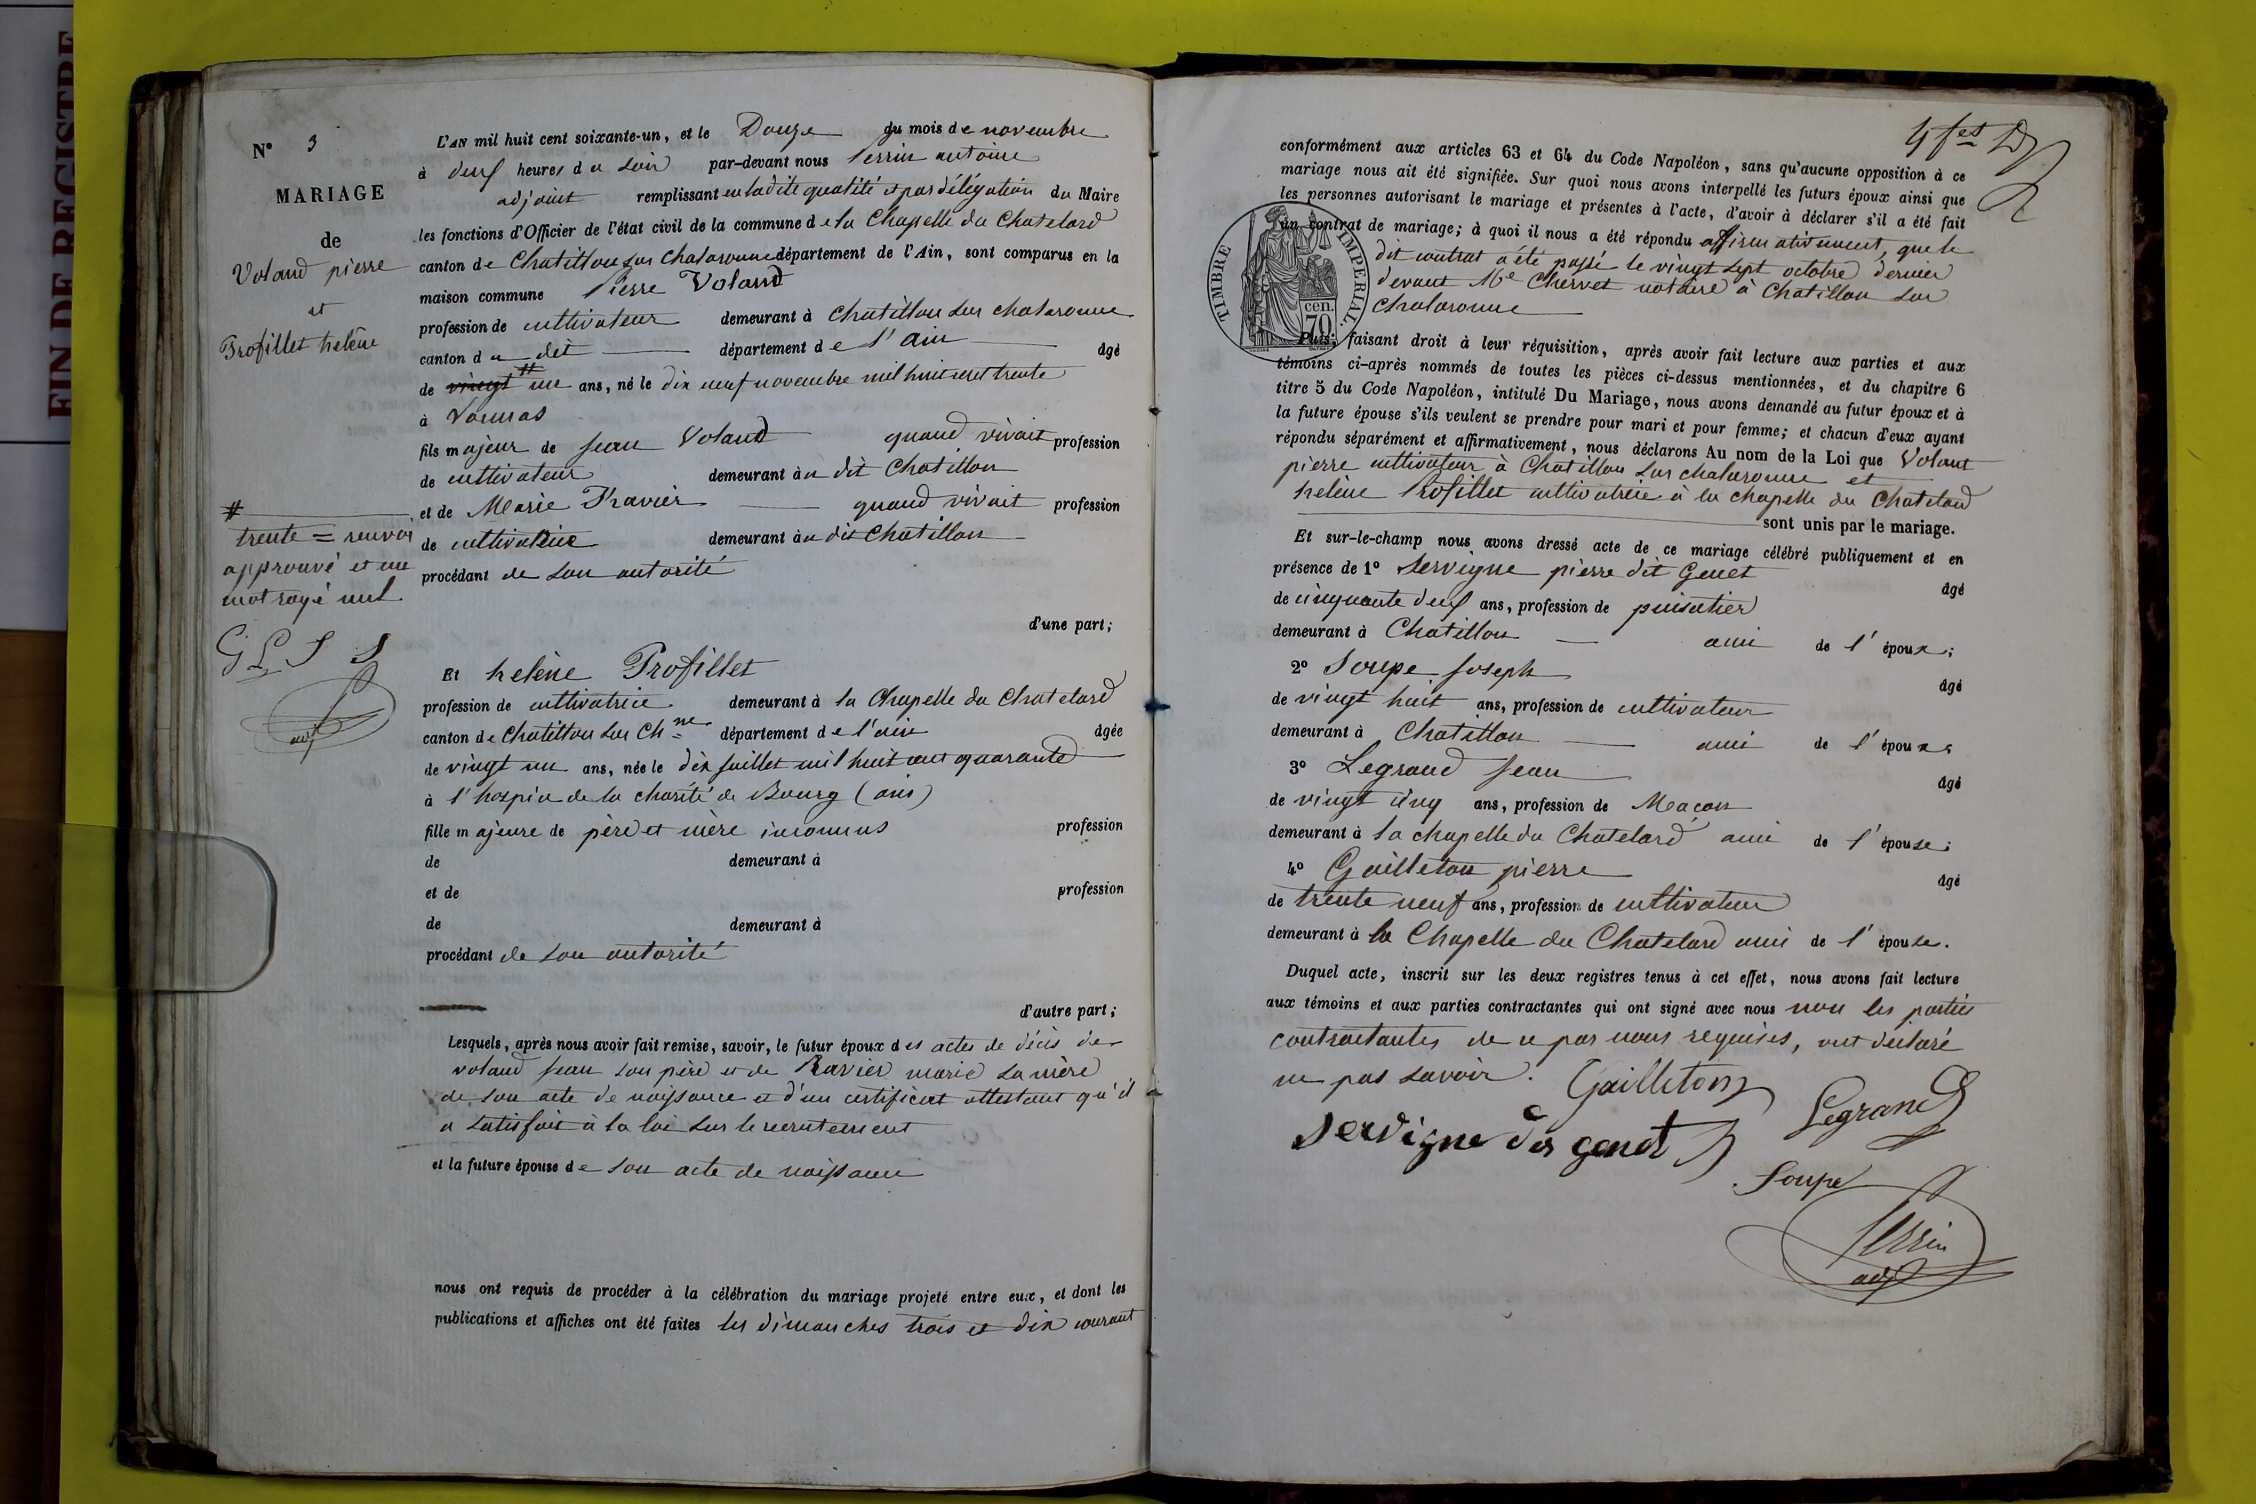 FIN DE REGISTRE
N° 3
MARIAGE
de
Voland pierre
et
Profillet helène
#
trente = renvoi
approuvé et un
mot rayé nul
G L S S
adj
L'AN mil huit cent soixante-un, et le Douze du mois de novembre
à deux heures du soir par-devant nous Perrin antoine
adjoint remplissant en ladite qualité et par délégation du Maire
les fonctions d'Officier de l'état civil de la commune de la Chapelle du Chatelard
canton de Chatillon sur chalaronne département de l'Ain, sont comparus en la
maison commune Pierre Voland
profession de cultivateur demeurant à Chatillon sur chalaronne
canton du dit département de l'ain âgé
de vingt # un ans, né le dix neuf novembre mil huit cent trente
à Vonnas
fils majeur de Jean Voland quand vivait profession
de cultivateur demeurant au dit Chatillon
et de Marie Ravier quand vivait profession
de cultivatrice demeurant au dit Chatillon
procédant de son autorité
d'une part;
Et helène Profillet
profession de cultivatrice demeurant à la Chapelle du Chatelard
canton de Chatillon sur Chne département de l'ain âgée
de vingt un ans, née le dix juillet mil huit cent quarante
à l'hospice de la charité de Bourg (ain)
fille majeure de père et mère inconnus profession
de demeurant à
et de profession
de demeurant à
procédant de son autorité
d'autre part;
Lesquels, après nous avoir fait remise, savoir, le futur époux des actes de décès de
voland Jean son père et de Ravier marie sa mère
de son acte de naissance et d'un certificat attestant qu'il
a satisfait à la loi sur le recrutement
et la future épouse de son acte de naissance
nous ont requis de procéder à la célébration du mariage projeté entre eux, et dont les
publications et affiches ont été faites les dimanches trois et dix courant
conformément aux articles 63 et 64 du Code Napoléon, sans qu'aucune opposition à ce
mariage nous ait été signifiée. Sur quoi nous avons interpellé les futurs époux ainsi que
les personnes autorisant le mariage et présentes à l'acte, d'avoir à déclarer s'il a été fait
un contrat de mariage; à quoi il nous a été répondu affirmativement, que le
dit contrat a été passé le vingt sept octobre dernier
devant Me Chervet notaire à Chatillon sur
Chalaronne
TIMBRE IMPERIAL.
70 cen.
Puis, faisant droit à leur réquisition, après avoir fait lecture aux parties et aux
témoins ci-après nommés de toutes les pièces ci-dessus mentionnées, et du chapitre 6
titre 5 du Code Napoléon, intitulé Du Mariage, nous avons demandé au futur époux et à
la future épouse s'ils veulent se prendre pour mari et pour femme; et chacun d'eux ayant
répondu séparément et affirmativement, nous déclarons Au nom de la Loi que Volant
pierre cultivateur à Chatillon sur chalaronne et
helène Profillet cultivatrice à la chapelle du Chatelard
sont unis par le mariage.
Et sur-le-champ nous avons dressé acte de ce mariage célébré publiquement et en
présence de 1° Servigne pierre dit Genet âgé
de cinquante deux ans, profession de puisatier
demeurant à Chatillon ami de l'époux;
2° Soupe Joseph âgé
de vingt huit ans, profession de cultivateur
demeurant à Chatillon ami de l'époux;
3° Legrand Jean âgé
de vingt cinq ans, profession de Maçon
demeurant à la chapelle du Chatelard ami de l'épouse;
4° Gailleton pierre âgé
de trente neuf ans, profession de cultivateur
demeurant à la Chapelle du Chatelard ami de l'épouse.
Duquel acte, inscrit sur les deux registres tenus à cet effet, nous avons fait lecture
aux témoins et aux parties contractantes qui ont signé avec nous non les parties
contractantes de ce par nous requises, ont déclaré
ne pas savoir. Gailleton
Legrand
servigne dit genet
Soupe
Perrin
adj